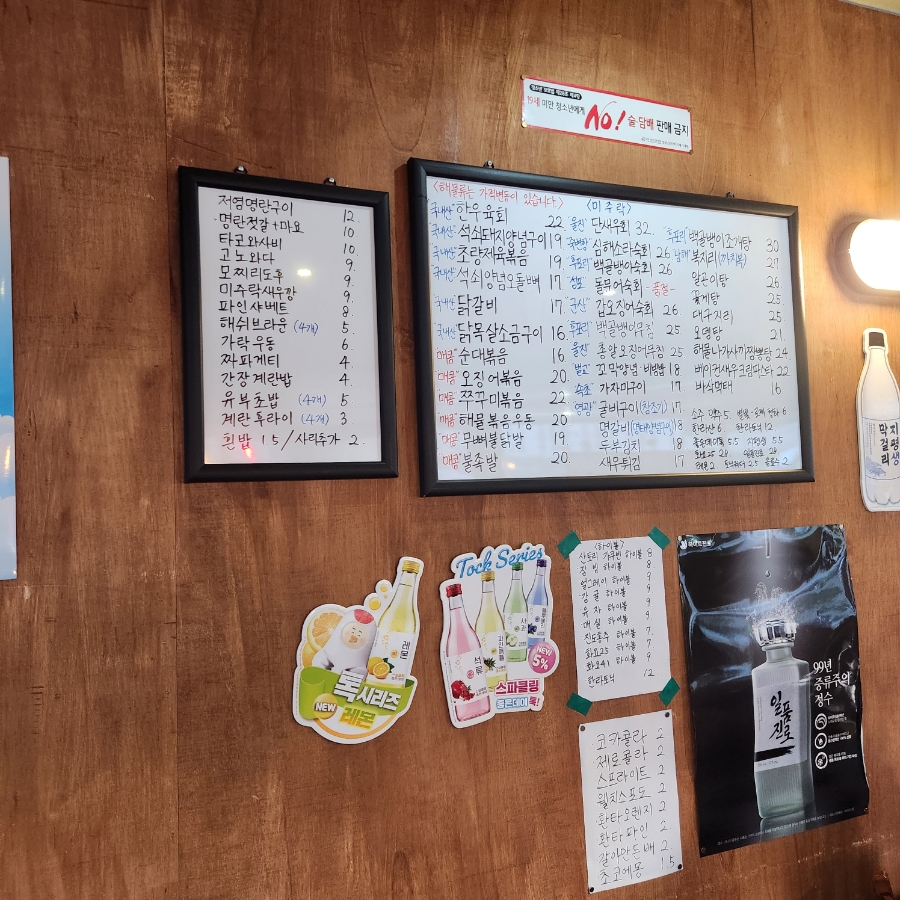 19세 미만 청소년에게 NO! 술·담배 판매 금지
저염명란구이 12.
명란젓갈+마요 10
타코와사비 10
고노와다 9.
모찌리도후 9.
미주락새우깡 9.
파인샤베트 8.
해쉬브라운 (4개) 5.
가락우동 6.
짜파게티 4.
간장계란밥 4.
유부초밥 (4개) 5
계란후라이 (4개) 3.
흰밥 1.5 / 사리추가 2.
<해물류는 가격변동이 있습니다>
"국내산" 한우육회 22.
"국내산" 석쇠돼지양념구이 19.
"국내산" 초량제육볶음 19
"국내산" 석쇠양념오돌뼈 17
"국내산" 닭갈비 17.
"국내산" 닭목살소금구이 16.
"매콤" 순대볶음 16
"매콤" 오징어볶음 20.
"매콤" 쭈꾸미볶음 22.
"매콤" 해물볶음우동 20
"매콤" 무뼈불닭발 19.
"매콤" 불족발 20.
<미주락>
"울진" 단새우회 32.
심해소라숙회 26
"후포리" 백골뱅이숙회 26
돌문어숙회 -품절-
"군산" 갑오징어숙회 26
"후포리" 백골뱅이무침 25
"울진" 통알오징어무침 25
"벌교" 꼬막양념·비빔밥 18
"속초" 가자미구이 17
"영광" 굴비구이 (참조기) 17
명갈비 18
두부김치 18
새우튀김 17
"후포리" 백골뱅이조개탕 30
"남해" 복지리 (까치복) 27
알곤이탕 26
꽃게탕 26.
대구지리 25
오뎅탕 21.
해물나가사끼짬뽕탕 24
베이컨새우크림파스타 22
바삭먹태 16
한라산 6. 한라토닉 12
지평
생
막걸리
Tock Series
석류
파인애플
사과
NEW 5%
스파클링
좋은데이 톡!
레몬
톡시리즈
NEW
레몬
<하이볼>
산토리 가쿠빈 하이볼 8
짐빔 하이볼 8
얼그레이 하이볼 9
유자 하이볼 9
매실 하이볼 9
진도홍주 하이볼 7.
화요25 하이볼 7
화요41 하이볼 9
한라토닉 12
코카콜라 2
제로콜라 2
스프라이트 2
웰치스포도 2
환타오렌지 2
환타파인 2
갈아만든배 2
초코에몽 1.5
하이트진로
99년
증류주의
정수
일품
진로